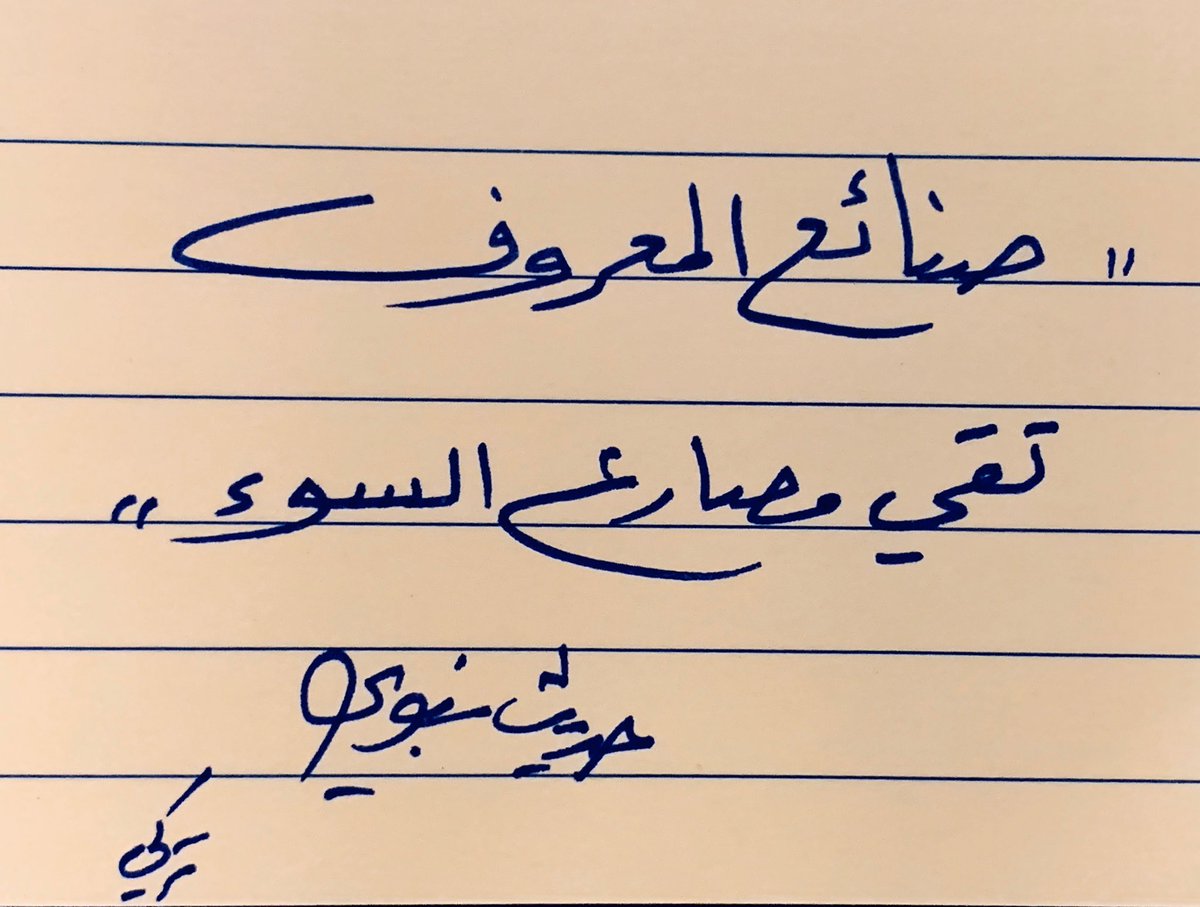 " صنائع المعروف
تقي مصارع السوء "
حديث نبوي
تركي